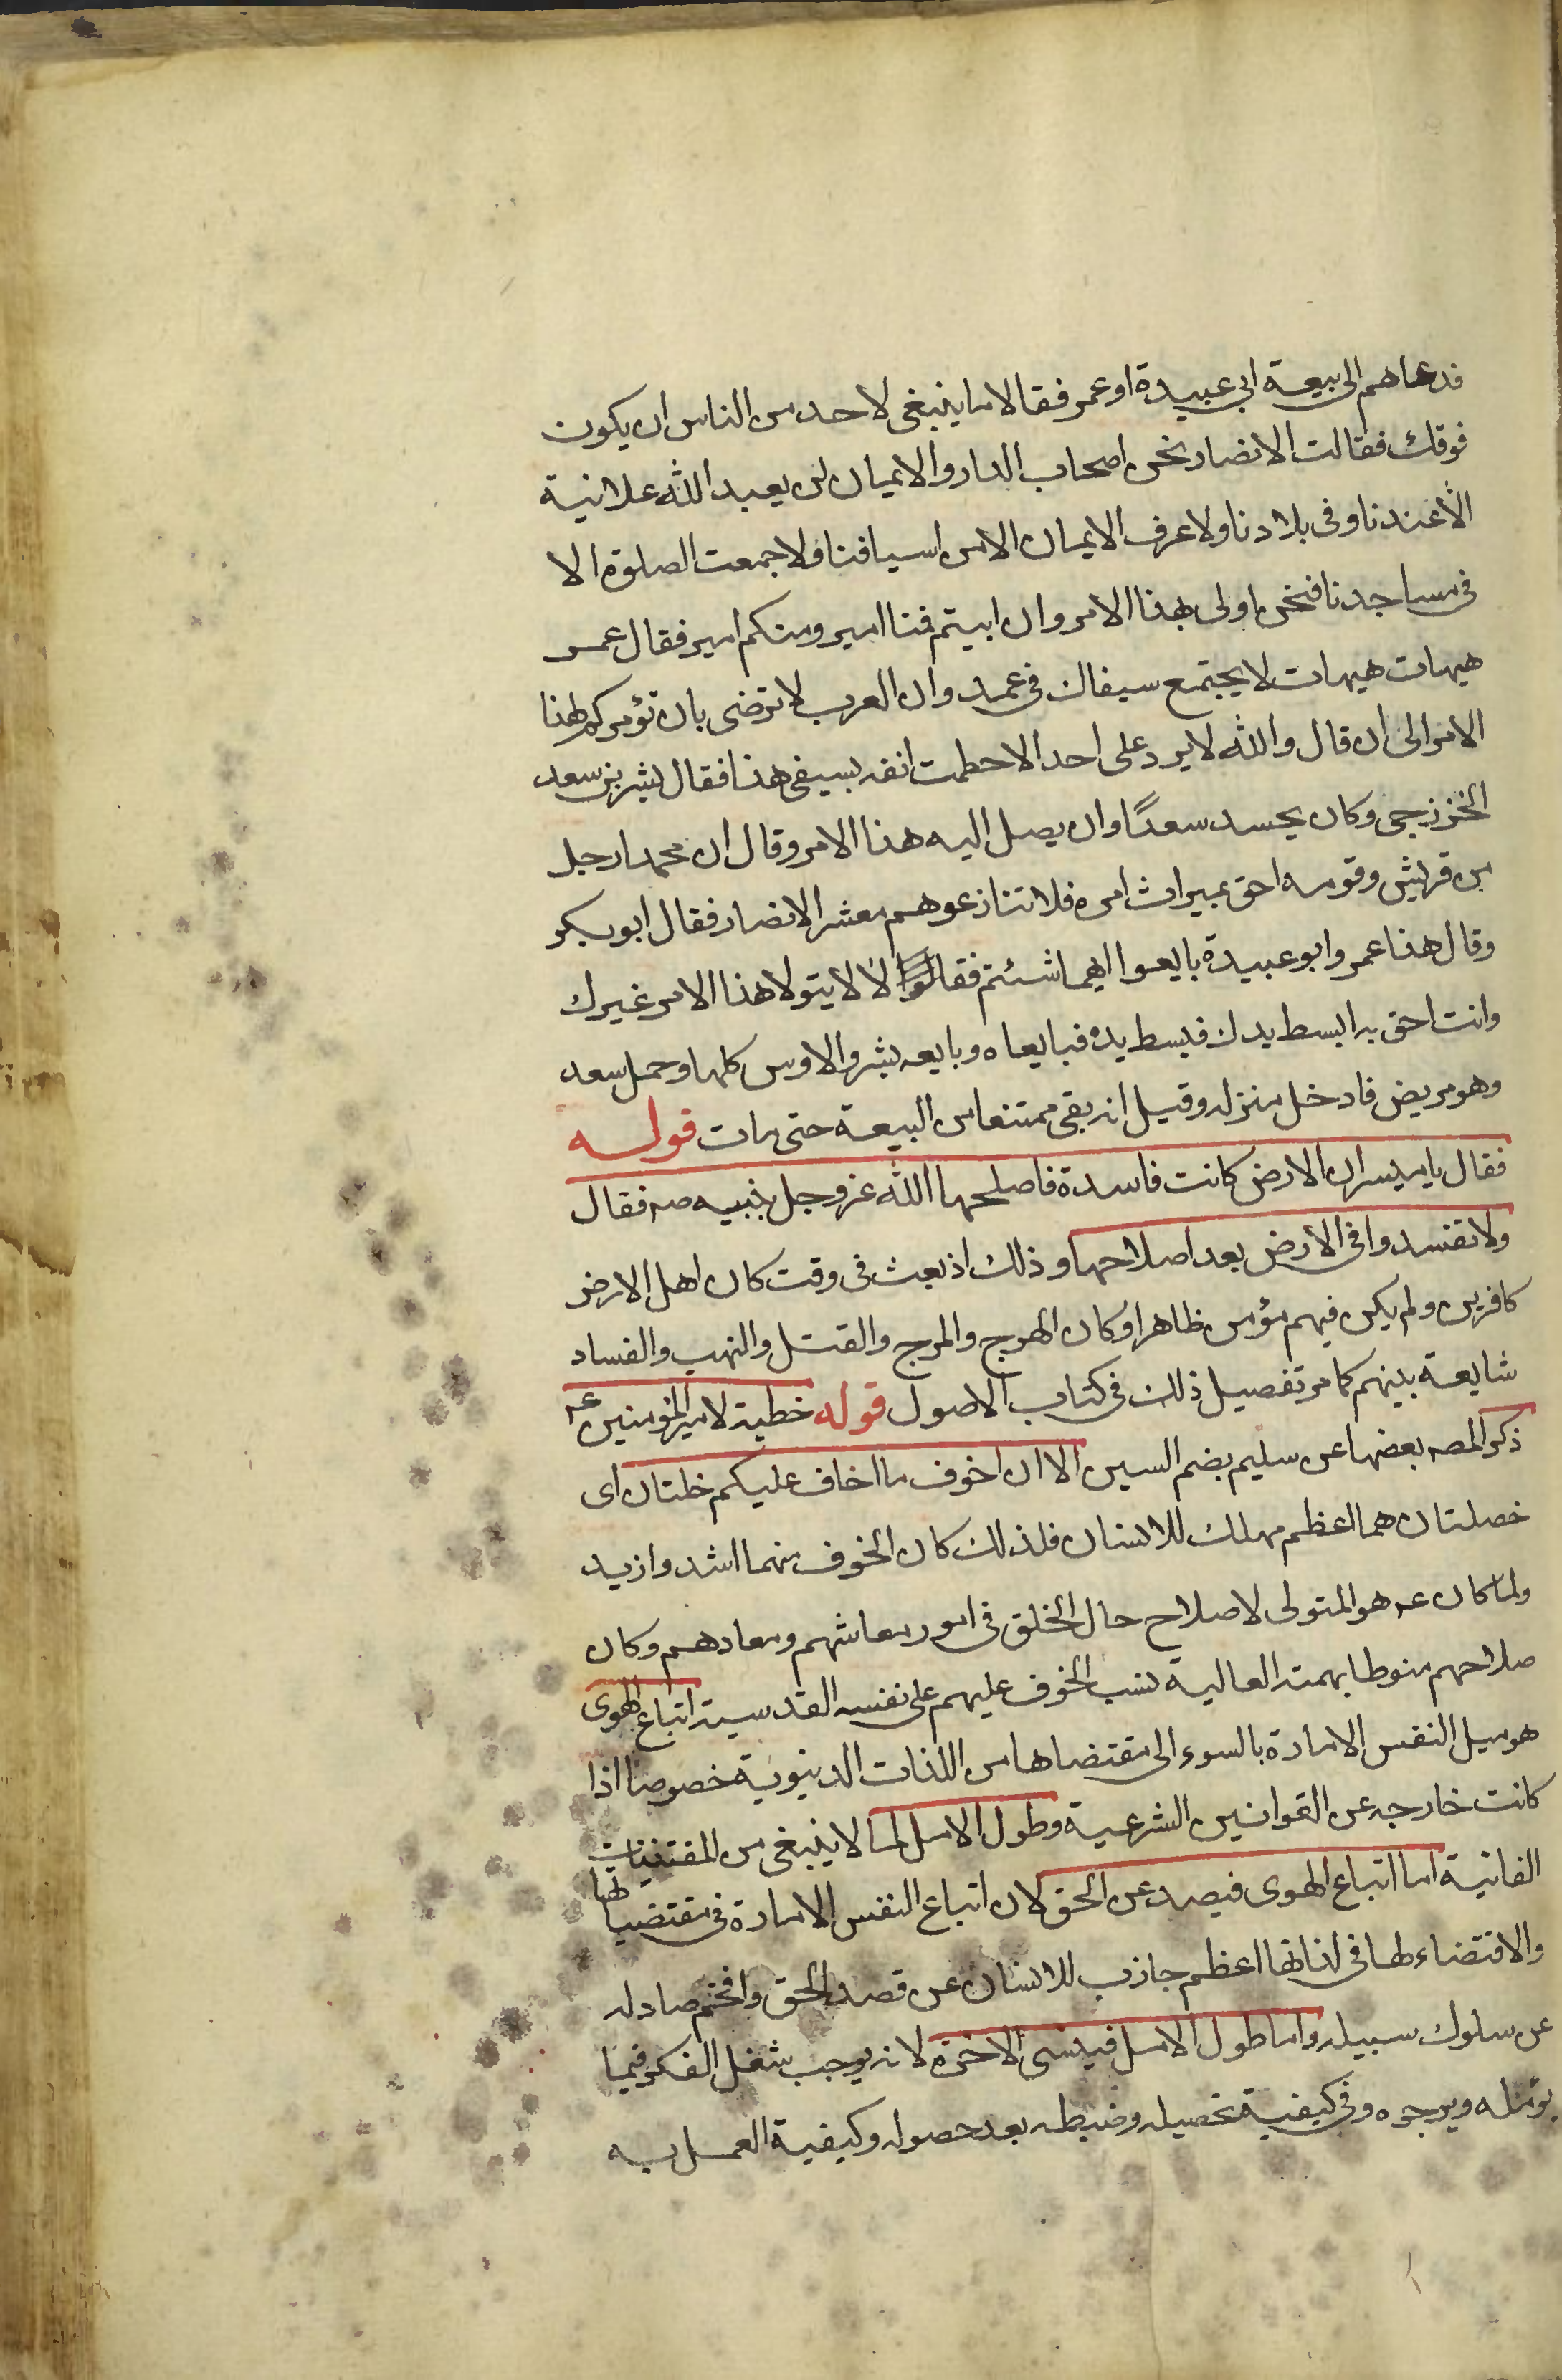 فدعاهم الى بيعة ابي عبيدة او عمر فقالا ما ينبغى لاحد من الناس ان يكون
فوقك فقالت الانصار نحن اصحاب الدار والايمان لن يعبد الله علانية
الا عندنا وفى بلادنا ولا عرف الايمان الا من اسيافنا ولا جمعت الصلوة الا
فى مساجدنا فنحن اولى بهذا الامر وان ابيتم فمنا امير ومنكم امير فقال عمر
هيهات هيهات لا يجتمع سيفان فى غمد وان العرب لا ترضى بان تؤمركم لهذا
الامر الى ان قال والله لا يرد على احد الا حطمت انفه بسيفى هذا فقال بشير بن سعد
الخزرجى وكان يحسد سعدًا وان يصل اليه هذا الامر وقال ان محمدا رجل
من قريش وقومه احق بميراث امره فلا تنازعوهم معشر الانصار فقال ابو بكر
وقال هذا عمر وابو عبيدة بايعوا ايهما شئتم فقالا لا لا يتولا هذا الامر غيرك
وانت احق به ابسط يدك فبسط يده فبايعاه وبايعه بشر والاوس كلها وحمل سعد
وهو مريض فادخل منزله وقيل انه بقى ممتنعا من البيعة حتى مات قوله
فقال يا ميسر ان الارض كانت فاسدة فاصلحها الله عز وجل بنبيه صه فقال
ولا تفسدوا فى الارض بعد اصلاحها وذلك اذ بعث فى وقت كان اهل الارض
كافرين ولم يكن فيهم مؤمن ظاهرا وكان الهرج والمرج والقتل والنهب والفساد
شايعة بينهم كما مر تفصيل ذلك فى كتاب الاصول قوله خطبة لامير المؤمنين عه
ذكر المصه بعضها عن سليم بضم السين الا ان اخوف ما اخاف عليكم خلتان اى
خصلتان هما اعظم مهلك للانسان فلذلك كان الخوف منهما اشد وازيد
ولما كان عه هو المتولى لاصلاح حال الخلق فى امور معاشهم ومعادهم وكان
صلاحهم منوطا بهمته العالية نسب الخوف عليهم على نفسه القدسية اتباع الهوى
هو ميل النفس الامارة بالسوء الى مقتضاها من اللذات الدينوية خصوصا اذا
كانت خارجه عن القوانين الشرعية وطول الامل لما لا ينبغى من المقتنيات
الفانية اما اتباع الهوى فيصد عن الحق لان اتباع النفس الامارة فى مقتضياتها
والاقتضاء لها فى لذاتها اعظم جاذب للانسان عن قصد الحق وافخم صادله
عن سلوك سبيله واما طول الامل فينسى الاخرة لانه يوجب شغل الفكر فيما
يؤمله ويرجوه وفى كيفية تحصيله وضبطه بعد حصوله وكيفية العمل به